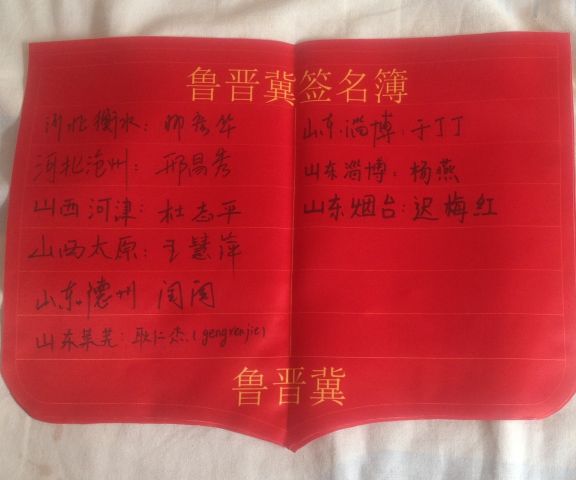 鲁晋冀签名簿
河北衡水：邢秀华
河北沧州：邢昌秀
山西河津：杜志平
山西太原：王慧萍
山东德州 闫闰
山东莱芜：耿仁杰(gengrenjie)
山东淄博：于丁丁
山东淄博：杨燕
山东烟台：迟梅红
鲁晋冀